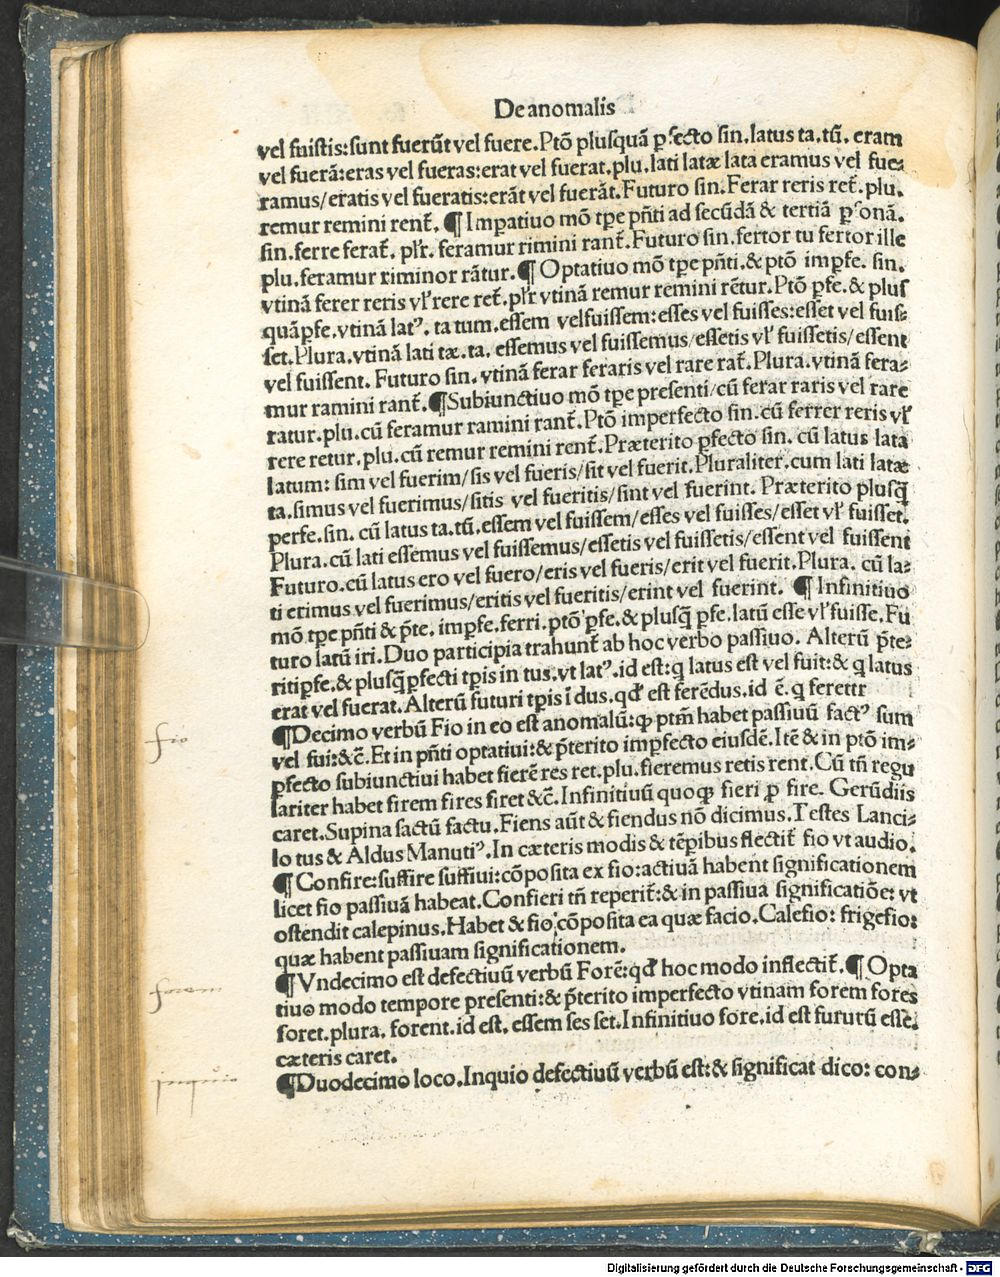 De anomalis
vel fuistis:sunt fuerūt vel fuere.Ptō plusquā ꝑfecto sin.latus ta.tū. eram
vel fuerā:eras vel fueras:erat vel fuerat.plu.lati latæ lata eramus vel fue⸗
ramus/eratis vel fueratis:erāt vel fuerāt.Futuro sin.Ferar reris ret̄.plu.
remur remini rent̄. ¶Impatiuo mō tꝑe pn̄ti ad secūdā & tertiā ꝑsonā.
sin.ferre ferat̄. plr̄. feramur rimini rant̄.Futuro sin.fertor tu fertor ille
plu.feramur riminor rātur.¶Optatiuo mō tꝑe pn̄ti.& ptō imꝑfe. sin.
vtinā ferer reris vl̓ rere ret̄.plr̄ vtinā remur remini rētur.Ptō ꝑfe.& plus
quāꝑfe.vtinā latꝰ. ta tum.essem velfuissem:esses vel fuisses:esset vel fuis⸗
set.Plura.vtinā lati tæ.ta. essemus vel fuissemus/essetis vl̓ fuissetis/essent
vel fuissent. Futuro sin. vtinā ferar feraris vel rare rat̄.Plura.vtinā fera⸗
mur ramini rant̄.¶Subiunctiuo mō tꝑe presenti/cū ferar raris vel rare
ratur.plu.cū feramur ramini rant̄.Ptō imperfecto sin.cū ferrer reris vl̓
rere retur.plu.cū remur remini rent̄.Præterito ꝑfecto sin. cū latus lata
latum: sim vel fuerim/sis vel fueris/sit vel fuerit.Pluraliter.cum lati latæ
ta.simus vel fuerimus/sitis vel fueritis/sint vel fuerint. Præterito plusq̄
perfe.sin. cū latus ta.tū.essem vel fuissem/esses vel fuisses/esset vl̓ fuisset.
Plura.cū lati essemus vel fuissemus/essetis vel fuissetis/essent vel fuissent
Futuro.cū latus ero vel fuero/eris vel fueris/erit vel fuerit.Plura. cū la⸗
ti erimus vel fuerimus/eritis vel fueritis/erint vel fuerint. ¶Infinitiuo
mō tꝑe pn̄ti & p̄te. imꝑfe.ferri.ptō ꝑfe.& plusq̄ ꝑfe.latū esse vl̓ fuisse.Fu
turo latū iri.Duo participia trahunt̄ ab hoc verbo passiuo. Alterū p̄te⸗
ritiꝑfe.& plusq̄ꝑfecti tꝑis in tus.vt latꝰ.id est:q latus est vel fuit:& q latus
erat vel fuerat.Alterū futuri tꝑis ī dus.qd̓ est ferēdus.id ē.q ferettr
¶Decimo verbū Fio in eo est anomalū:ꝙ ptm̄ habet passiuū factꝰ sum
vel fui:&c̄.Et in pn̄ti optatiui:& p̄terito imꝑfecto eiusdē.Itē & in ptō im⸗
ꝑfecto subiunctiui habet fierē res ret.plu.fieremus retis rent.Cū tn̄ regu
lariter habet firem fires firet &c̄.Infinitiuū quoqꝫ fieri ꝑ fire. Gerūdiis
caret.Supina factū factu.Fiens aūt & fiendus nō dicimus.Testes Lanci⸗
lo tus & Aldus Manutiꝰ.In cæteris modis & tēꝑibus flectit̄ fio vt audio.
¶Confire:suffire suffiui:cōposita ex fio:actiuā habent significationem
licet fio passiuā habeat.Confieri tn̄ reperit̄:& in passiua significatiōe: vt
ostendit calepinus.Habet & fio cōposita ea quæ facio.Calefio: frigefio:
quæ habent passiuam significationem.
¶Vndecimo est defectiuū verbū Forē:qd̓ hoc modo inflectit̄.¶Opta
tiuo modo tempore presenti:& p̄terito imperfecto vtinam forem fores
foret.plura. forent.id est. essem ses set.Infinitiuo fore.id est futurū esse.
cæteris caret.
¶Duodecimo loco.Inquio defectiuū verbū est:& significat dico: con⸗
fio
Digitalisierung gefördert durch die Deutsche Forschungsgemeinschaft - DFG